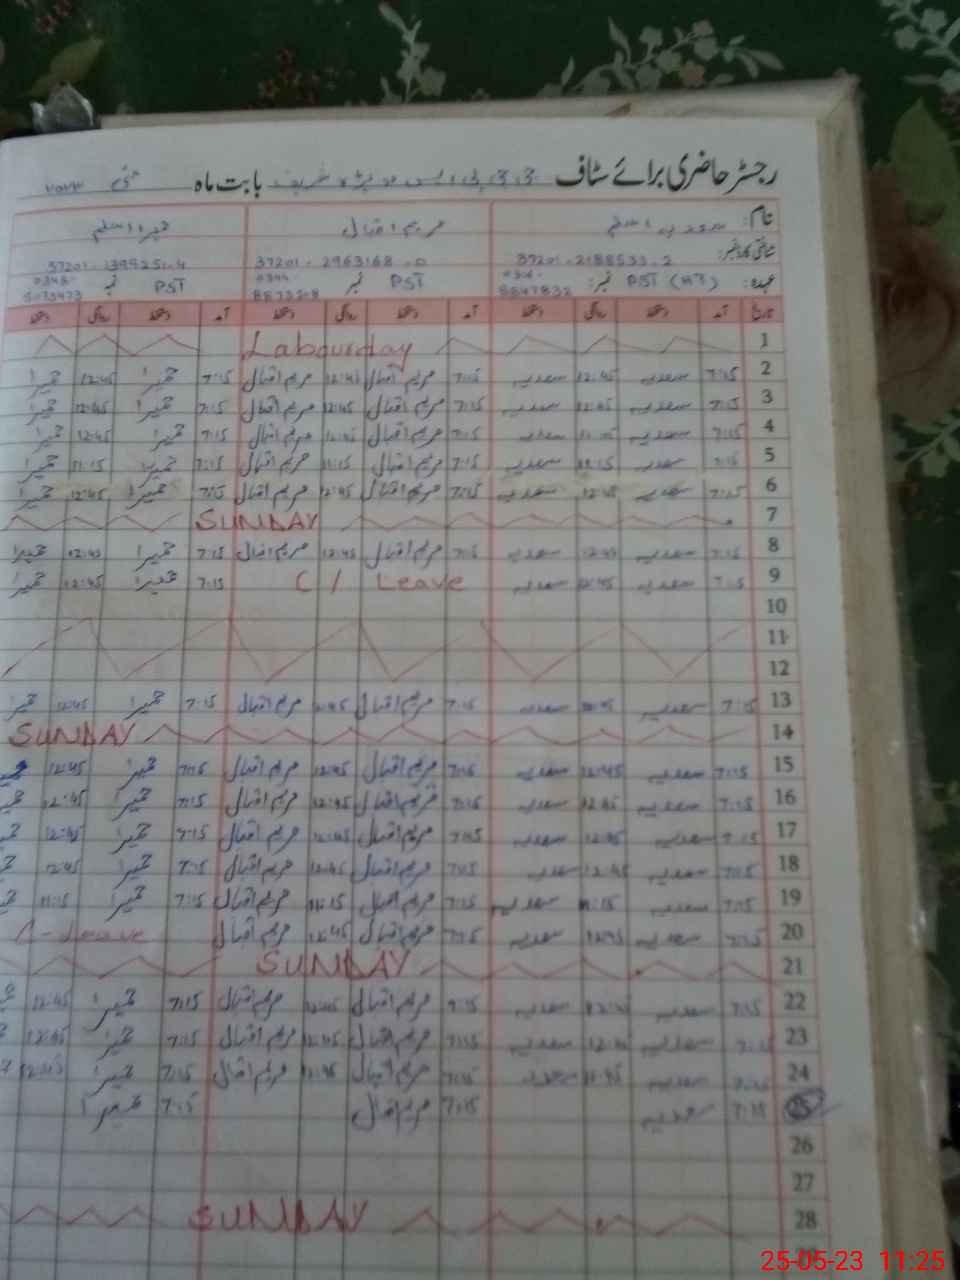 رجسٹر حاضری برائے سٹاف بابت ماہ مئی ۲۰۲۳
نام: سعدیہ اسلم مریم اقبال حمیرا اسلم
شناختی کارڈ نمبر: 37201-2188533-2 37201-2963168-0 37201-1399251-4
عہدہ: PST نمبر: 8847832 PST نمبر 0344- 8873208 PST نمبر 0348-
تاریخ آمد دستخط روانگی دستخط آمد دستخط روانگی دستخط آمد دستخط روانگی دستخط
1 Labourday
2 7:15 سعدیہ 12:45 سعدیہ 7:15 مریم اقبال 12:45 مریم اقبال 7:15 حمیرا 12:45 حمیرا
3 7:15 سعدیہ 12:45 سعدیہ 7:15 مریم اقبال 12:45 مریم اقبال 7:15 حمیرا 12:45 حمیرا
4 7:15 سعدیہ 12:45 سعدیہ 7:15 مریم اقبال 12:45 مریم اقبال 7:15 حمیرا 12:45 حمیرا
5 7:15 سعدیہ 11:15 سعدیہ 7:15 مریم اقبال 11:15 مریم اقبال 7:15 حمیرا 11:15 حمیرا
6 7:15 سعدیہ 12:45 سعدیہ 7:15 مریم اقبال 12:45 مریم اقبال 7:15 حمیرا 12:45 حمیرا
7 SUNDAY
8 7:15 سعدیہ 12:45 سعدیہ 7:15 مریم اقبال 12:45 مریم اقبال 7:15 حمیرا 12:45 حمیرا
9 7:15 سعدیہ 12:45 سعدیہ C / Leave 7:15 حمیرا 12:45 حمیرا
10
11
12
13 7:15 سعدیہ 12:45 سعدیہ 7:15 مریم اقبال 12:45 مریم اقبال 7:15 حمیرا 12:45 حمیرا
14 SUNDAY
15 7:15 سعدیہ 12:45 سعدیہ 7:15 مریم اقبال 12:45 مریم اقبال 7:15 حمیرا 12:45
16 7:15 سعدیہ 12:45 سعدیہ 7:15 مریم اقبال 12:45 مریم اقبال 7:15 حمیرا 12:45
17 7:15 سعدیہ 12:45 سعدیہ 7:15 مریم اقبال 12:45 مریم اقبال 7:15 حمیرا 12:45
18 7:15 سعدیہ 12:45 سعدیہ 7:15 مریم اقبال 12:45 مریم اقبال 7:15 حمیرا 12:45
19 7:15 سعدیہ 11:15 سعدیہ 7:15 مریم اقبال 11:15 مریم اقبال 7:15 حمیرا 11:15
20 7:15 سعدیہ 12:45 سعدیہ 7:15 مریم اقبال 12:45 مریم اقبال C-Leave
21 SUNDAY
22 7:15 سعدیہ 12:45 سعدیہ 7:15 مریم اقبال 12:45 مریم اقبال 7:15 حمیرا 12:45
23 7:15 سعدیہ 12:45 سعدیہ 7:15 مریم اقبال 12:45 مریم اقبال 7:15 حمیرا 12:45
24 7:15 سعدیہ 12:45 سعدیہ 7:15 مریم اقبال 12:45 مریم اقبال 7:15 حمیرا 12:45
25 7:15 سعدیہ 7:15 مریم اقبال 7:15 حمیرا
26
27
28 SUNDAY
25-05-23 11:25